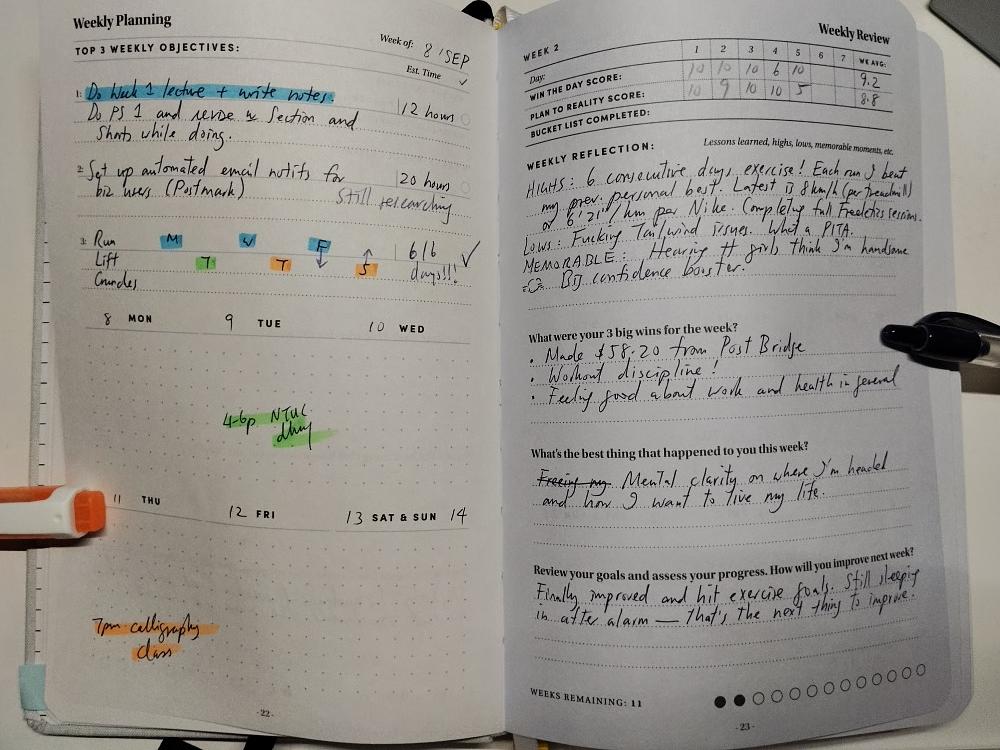 Weekly Planning
Week of: 8 SEP
TOP 3 WEEKLY OBJECTIVES:
Est. Time ✓
1: Do Week 1 lecture + write notes.
Do PS 1 and revise w Section and
Shorts while doing.
12 hours
2: Set up automated email notifs for
biz users (Postmark)
20 hours
Still researching
3: Run M W F
Lift T T S
Crunches
6/6 ✓
days!!!
8 MON
9 TUE
10 WED
4-6p NTUC
dhy
11 THU
12 FRI
13 SAT & SUN 14
7pm calligraphy
class
-22-
Weekly Review
WEEK 2
Day: 1 2 3 4 5 6 7 WK AVG:
WIN THE DAY SCORE: 10 10 10 6 10 9.2
PLAN TO REALITY SCORE: 10 9 10 10 5 8.8
BUCKET LIST COMPLETED:
WEEKLY REFLECTION: Lessons learned, highs, lows, memorable moments, etc.
HIGHS: 6 consecutive days exercise! Each run I beat
my prev. personal best. Latest is 8km/h (per treadmill)
or 6'21"/km per Nike. Completing full Freeletics sessions.
LOWS: Fucking Tailwind issues. What a PITA.
MEMORABLE: Hearing girls think I'm handsome
Big confidence booster.
What were your 3 big wins for the week?
• Made $58.20 from Post Bridge
• Workout discipline!
• Feeling good about work and health in general
What's the best thing that happened to you this week?
Freeing my Mental clarity on where I'm headed
and how I want to live my life.
Review your goals and assess your progress. How will you improve next week?
Finally improved and hit exercise goals. Still sleeping
in after alarm — that's the next thing to improve.
WEEKS REMAINING: 11
-23-